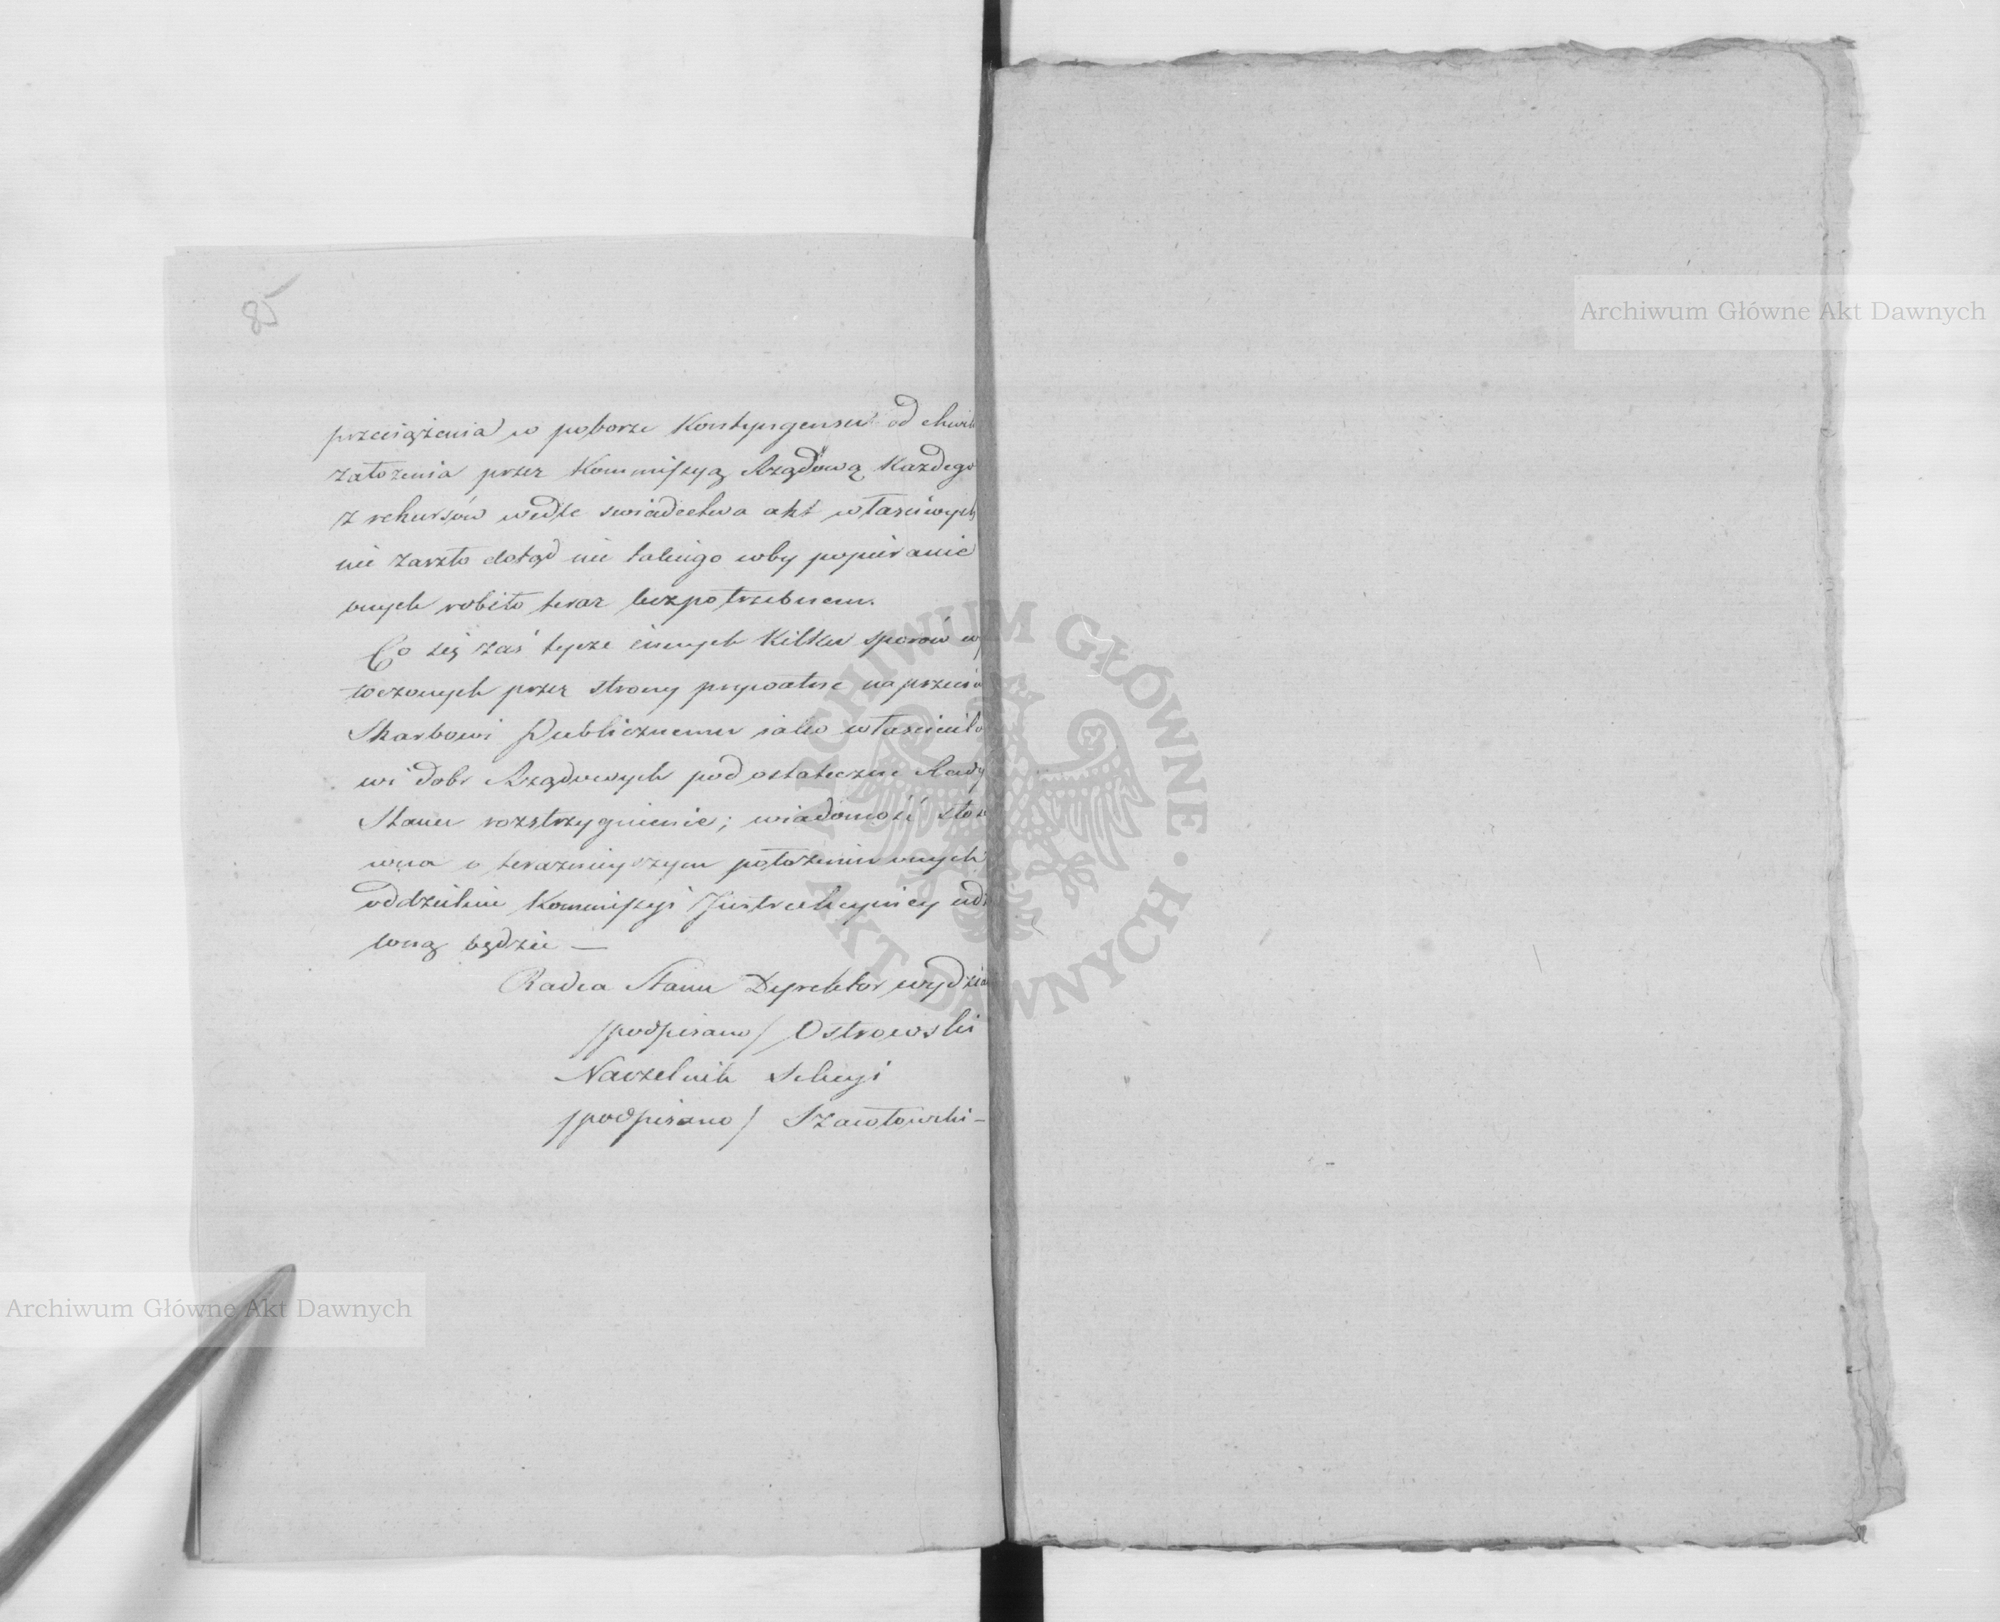 85
przeciążenia w poborze Kontyngensu od chwil
założenia przez Kommissyą Rządową Każdego
z rekursów wedle swiadectwa akt własciwych
nie zaszło dotąd nic takiego coby popieranie
onych robiło teraz bezpotrzebnem.
Co się zaś tycze innych Kilku sporów wy
toczonych przez strony prywatne naprzeciw
Skarbowi Publicznemu jako własciciélo
wi dobr Rządowych pod ostateczne Rady
Stanu rozstrzygnienie; wiadomość stoso
wna o terazniejszym położeniu onych
oddzielnie Kommissyi Instrukcyjnej udzi
loną będzie —
Radca Stanu Dyrektor wydzia
/podpisano/ Ostrowski
Naczelnik Sekcyi
/podpisano/ Szawłowski -
Archiwum Główne Akt Dawnych
Archiwum Główne Akt Dawnych
ARCHIWUM GŁÓWNE • AKT DAWNYCH •